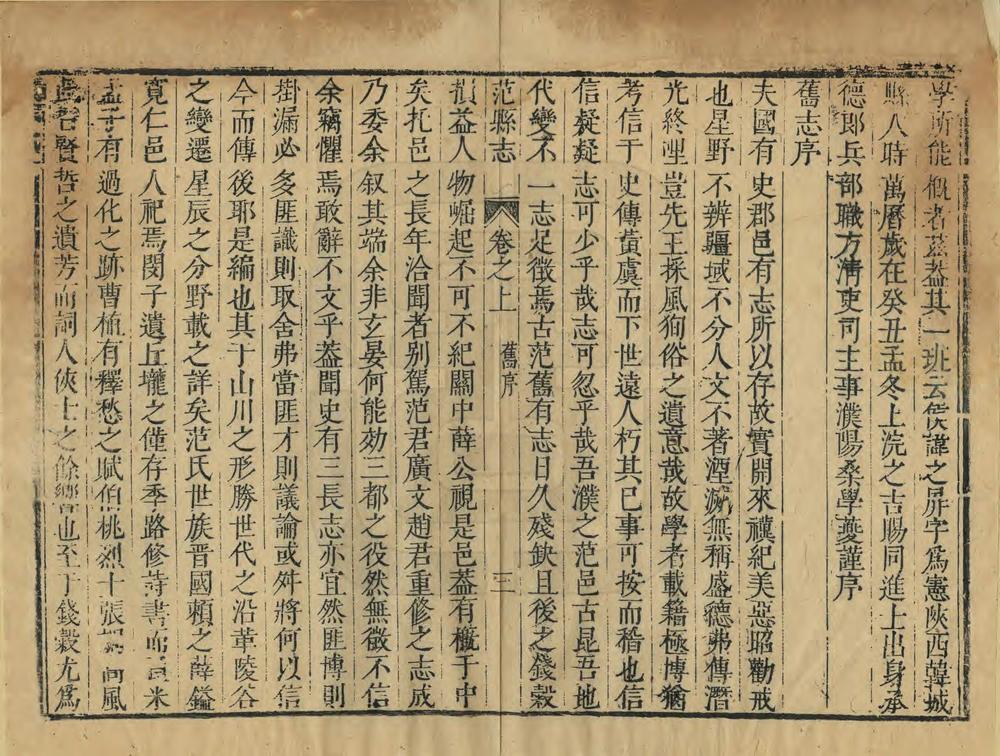 學所能概者蓋其一班云侯諱之屏字爲憲陝西韓城
縣人時萬曆歲在癸丑孟冬上浣之吉賜同進士出身承
德郎兵部職方淸吏司主事濮陽桑學夔謹序
舊志序
夫國有史郡邑有志所以存故實開來禩紀美惡昭勸戒
也星野不辨疆域不分人文不著湮滅無稱盛德弗傳潛
光終湮豈先王採風狥俗之遺意哉故學者載籍極博猶
考信于史傳黃虞而下世遠人朽其已事可按而稽也信
信疑疑志可少乎哉志可忽乎哉吾濮之范邑古昆吾地
代變不一志足徵焉古范舊有志日久殘缺且後之錢穀
范縣志 卷之上 舊序 三
損益人物崛起不可不紀關中薛公視是邑蓋有慨于中
矣扎邑之長年洽聞者别駕范君廣文趙君重修之志成
乃委余叙其端余非玄晏何能効三都之役然無徵不信
余竊懼焉敢辭不文乎蓋聞史有三長志亦宜然匪博則
掛漏必多匪識則取舍弗當匪才則議論或舛將何以信
今而傳後耶是編也其于山川之形勝世代之沿革陵谷
之變遷星辰之分野載之詳矣范氏世族晋國賴之薛鎰
寬仁邑人祀焉閔子遺丘壠之僅存季路修蒔書 米
孟子有過化之跡曹植有釋愁之賦伯桃烈十張 風
哲賢哲之遺芳而詞人俠士之餘響也至于錢穀尤爲